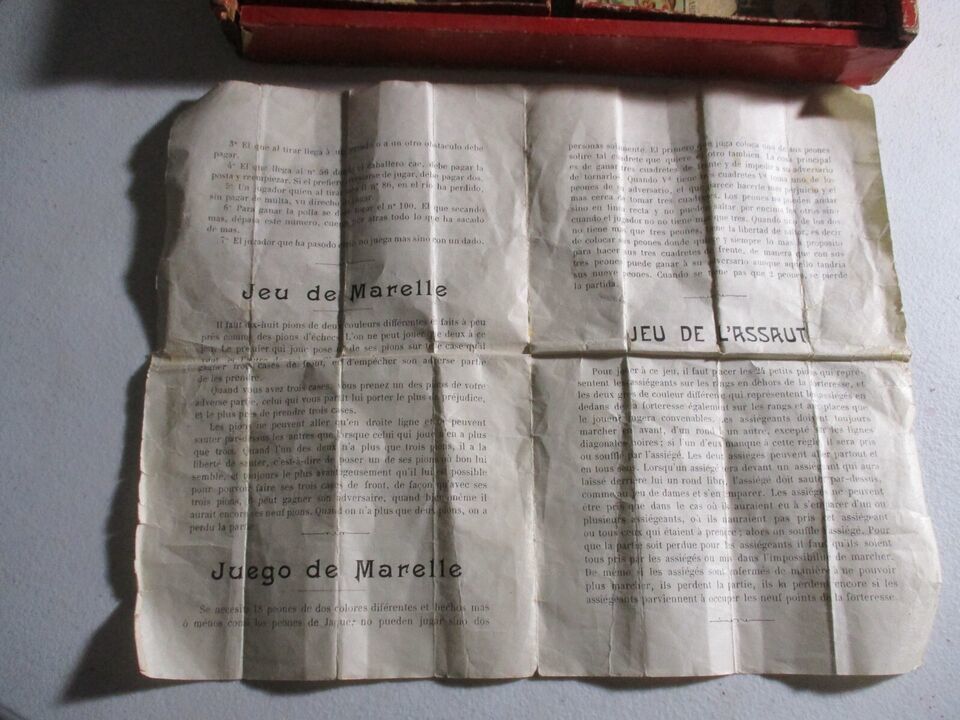 3º El que al tirar llega à un o a un otro obstaculo debe
pagar.
4º El que llega al nº 56 el caballero cae, debe pagar la
posta y recupiezar. Si el prefiere de jugar, debe pagar dos.
5º Un jugador quien al tirar il nº 86, en el rio ha perdido,
sin pagar de multa, vu directo
6º Para ganar la polla se debe el nº 100. El que secando
mas, dépasa este número, por atras todo lo que ha sacado
de mas.
7º El jugador que ha pasodo no juega mas sino con un dado.
Jeu de Marelle
Il faut dix-huit pions de deux couleurs différentes et faits à peu
près comme des pions d'échec. L'on ne peut jouer que deux à ce
jeu. Le premier qui joue pose de ses pions sur la case qu'il
gagner trois cases de front, et d'empêcher son adverse partie
de les prendre.
Quand vous avez trois cases, vous prenez un des pions de votre
adverse partie, celui qui vous paraît lui porter le plus de préjudice,
et le plus près de prendre trois cases.
Les pions ne peuvent aller qu'en droite ligne et ne peuvent
sauter par-dessus les autres que lorsque celui qui joue n'en a plus
que trois. Quand l'un des deux n'a plus que trois pions, il a la
liberté de sauter, c'est-à-dire de poser un de ses pions où bon lui
semble, et toujours le plus avantageusement qu'il lui est possible
pour pouvoir faire ses trois cases de front, de façon qu'avec ses
trois pions, il peut gagner son adversaire, quand bien même il
aurait encore ses neuf pions. Quand on n'a plus que deux pions, on a
perdu la partie.
Juego de Marelle
Se necesita 18 peones de dos colores diférentes et hechos mas
ò ménos como los peones de Jaque: no pueden jugar sino dos
personas solamente. El primero que juga coloca uno de sus peones
sobre tal cuadrete que quiere el otro tambien. La cosa principal
es de ganar tres cuadretes de frente y de impedir à su adversario
de tomarlos. Quando Vº tiene tres cuadretes Vº toma uno de los
peones de su adversario, el que parece hacerle mas perjuicio y el
mas cerca de tomar tres cuadretes. Los peones no pueden andar
sino en linea recta y no puede saltar por encima les otres sino
cuando el jugador no no tiene mas que tres. Quando uno de los dos
no tiene mas que tres peones, que la libertad de saltar, es decir
de colocar sus peones donde quiere y siempre lo mas à proposito
para hacer sus tres cuadretes de frente, de manera que con sus
tres peones puede ganar à su adversario aunque aquello tandria
sus nueve peones. Cuando se tiene pas que 2 peones, se pierde
la partida.
JEU DE L'ASSAUT
Pour jouer à ce jeu, il faut placer les 24 petits pions qui repré-
sentent les assiégeants sur les rangs en dehors de la forteresse, et
les deux gros de couleur différente qui représentent les assiégés en
dedans de la forteresse également sur les rangs et aux places que
le joueur jugera convenables. Les assiégeants doivent toujours
marcher en avant, d'un rond à un autre, excepté sur les lignes
diagonales noires; si l'un d'eux manque à cette règle il sera pris
ou soufflé par l'assiégé. Les deux assiégés peuvent aller partout et
en tous sens. Lorsqu'un assiégé sera devant un assiégeant qui aura
laissé derrière lui un rond libre, l'assiégé doit sauter par-dessus,
comme au jeu de dames et s'en emparer. Les assiégés ne peuvent
être pris que dans le cas où ils auraient eu à s'emparer d'un ou
plusieurs assiégeants, où ils n'auraient pas pris cet assiégeant
ou tous ceux qui étaient à prendre; alors on souffle l'assiégé. Pour
que la partie soit perdue pour les assiégeants il faut qu'ils soient
tous pris par les assiégés ou mis dans l'impossibilité de marcher.
De même si les assiégés sont enfermés de manière à ne pouvoir
plus marcher, ils perdent la partie, ils la perdent encore si les
assiégeants parviennent à occuper les neuf points de la forteresse.